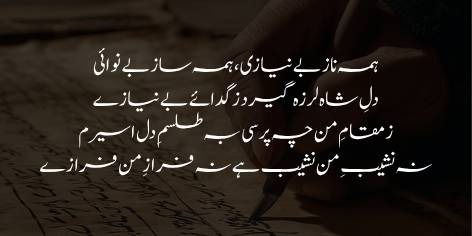 ہمہ ناز بے نیازی، ہمہ ساز بے نوائی
دلِ شاہ لرزہ گیرد ز گدائے بے نیازے
ز مقامِ من چہ پرسی بہ طلسمِ دل اسیرم
نہ نشیبِ من نشیب ہے نہ فرازِ من فرازے